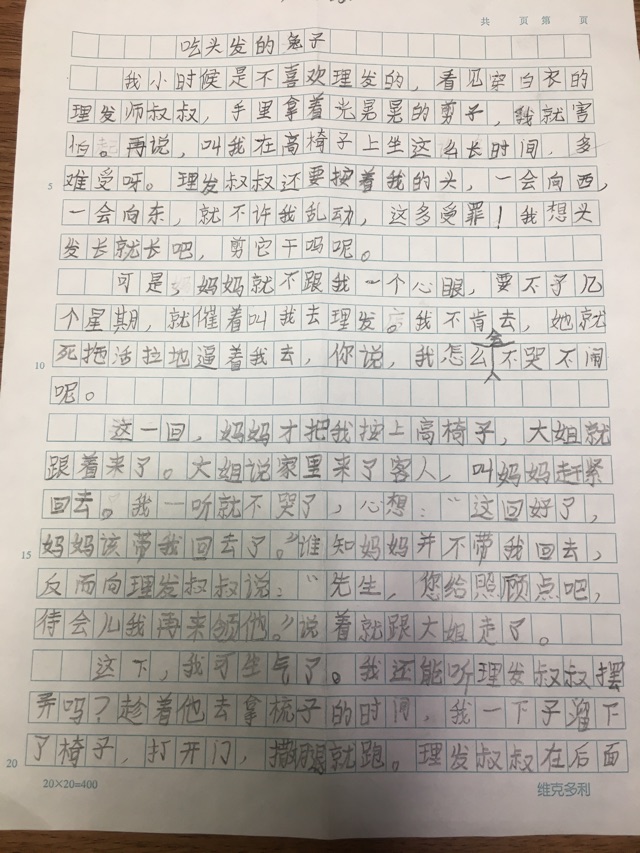 共 页 第 页
吃头发的兔子
我小时候是不喜欢理发的，看见穿白衣的
理发师叔叔，手里拿着光晃晃的剪子，我就害
怕。再说，叫我在高椅子上坐这么长时间，多
5 难受呀。理发叔叔还要按着我的头，一会向西，
一会向东，就不许我乱动，这多受罪！我想头
发长就长吧，剪它干吗呢。
可是，妈妈就不跟我一个心眼，要不了几
个星期，就催着叫我去理发。我不肯去，她就
10 死拖活拉地逼着我去，你说，我怎么会不哭不闹
呢。
这一回，妈妈才把我按上高椅子，大姐就
跟着来了。大姐说家里来了客人，叫妈妈赶紧
回去。我一听就不哭了，心想：“这回好了，
15 妈妈该带我回去了。”谁知妈妈并不带我回去，
反而向理发叔叔说：“先生，您给照顾点吧，
待会儿我再来领他。”说着就跟大姐走了。
这下，我可生气了。我还能听理发叔叔摆
弄吗？趁着他去拿梳子的时间，我一下子溜下
20 了椅子，打开门，撒腿就跑。理发叔叔在后面
20×20=400 维克多利